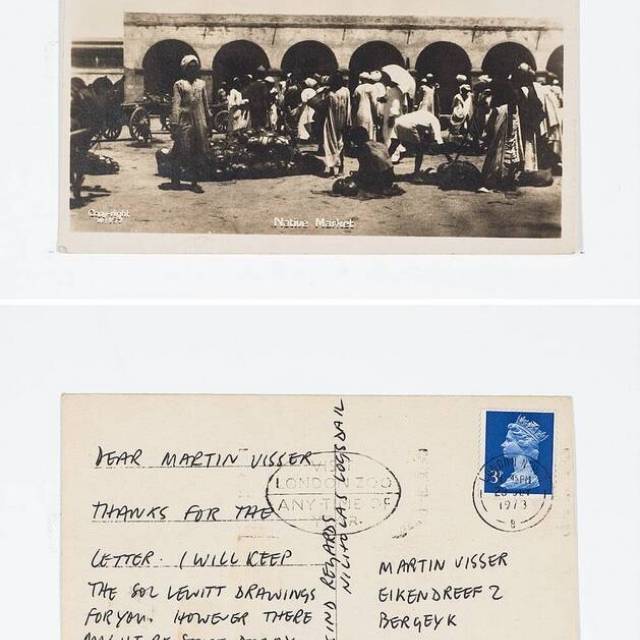 Copyright
Native Market
DEAR MARTIN VISSER
THANKS FOR THE
LETTER. I WILL KEEP
THE SOL LEWITT DRAWINGS
FOR YOU. HOWEVER THERE
KIND REGARDS
NICHOLAS LOGSDAIL
VISIT
LONDON ZOO
ANY TIME OF
3P
1973
MARTIN VISSER
EIKENDREEF 2
BERGEYK